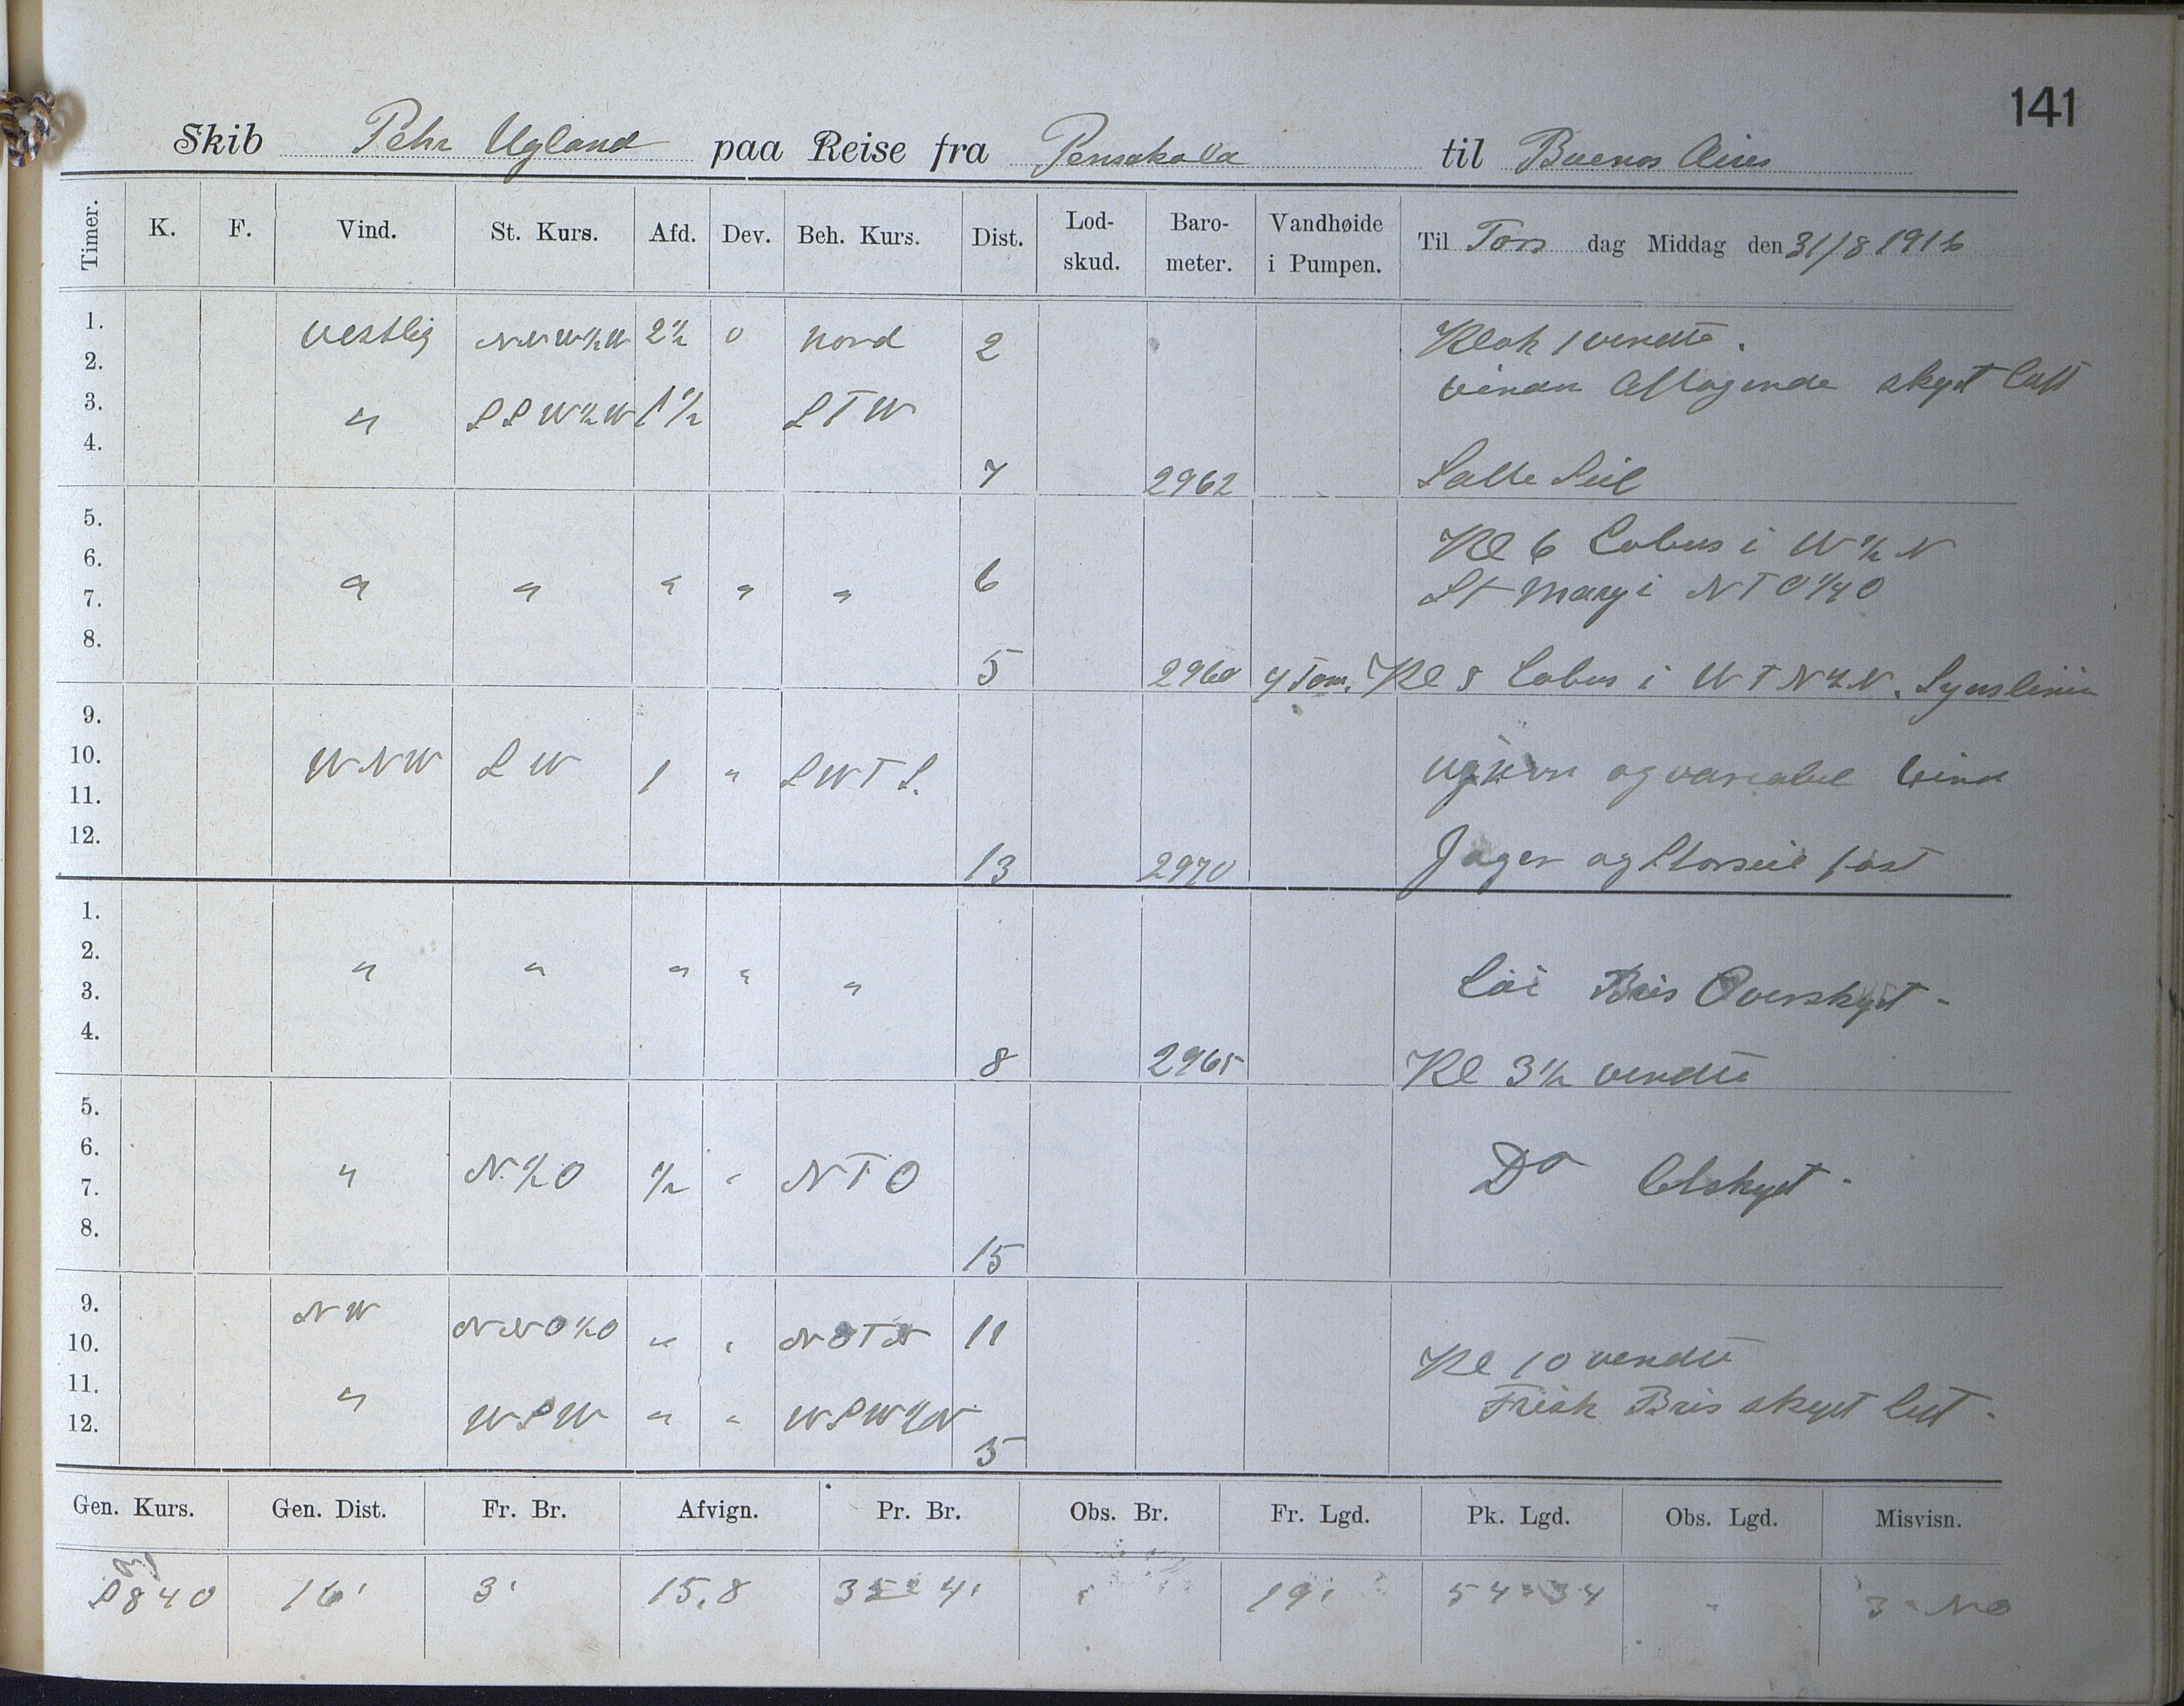 141
Skib Pehr Ugland paa Reise fra Pensakolla til Buenos Aires
Timer. K. F. Vind. St. Kurs. Afd. Dev. Beh. Kurs. Dist. Lod-skud. Baro-meter. Vandhøide i Pumpen. Til Tors dag Middag den 31/8 1916
1. Vestlig NNW½W 2½ 0 Nord 2 Klok 1 vendte.
2. Vinden Aftagende skyet Luft
3. " SSW½W 1½ STW
4. 7 2962 Satte Seil
5. Kl 6 Lobus i W½N
6. " " " " " 6
7. St Mary i NTO¼O
8. 5 2960 4 Tom. Kl 8 Lobus i WTN½N. Synslinie
9.
10. WNW SW 1 " SWTS. og variabel Vind
11.
12. 13 2970 Jager og Storseil fast
1.
2. " " " " " Løi Bris Overskyet -
3.
4. 8 2965 Kl 3½ vendte
5.
6. " N½O ½ " NTO Do Skyet -
7.
8. 15
9. NW NNO½O " " NOTN 11
10. Kl 10 vendte
11. " WSW " " WSW½W Frisk Bris skyet Luft -
12. 5
Gen. Kurs. Gen. Dist. Fr. Br. Afvign. Pr. Br. Obs. Br. Fr. Lgd. Pk. Lgd. Obs. Lgd. Misvisn.
S840 16' 3' 15,8 35° 4' " 19' 54°34 " 3° NO